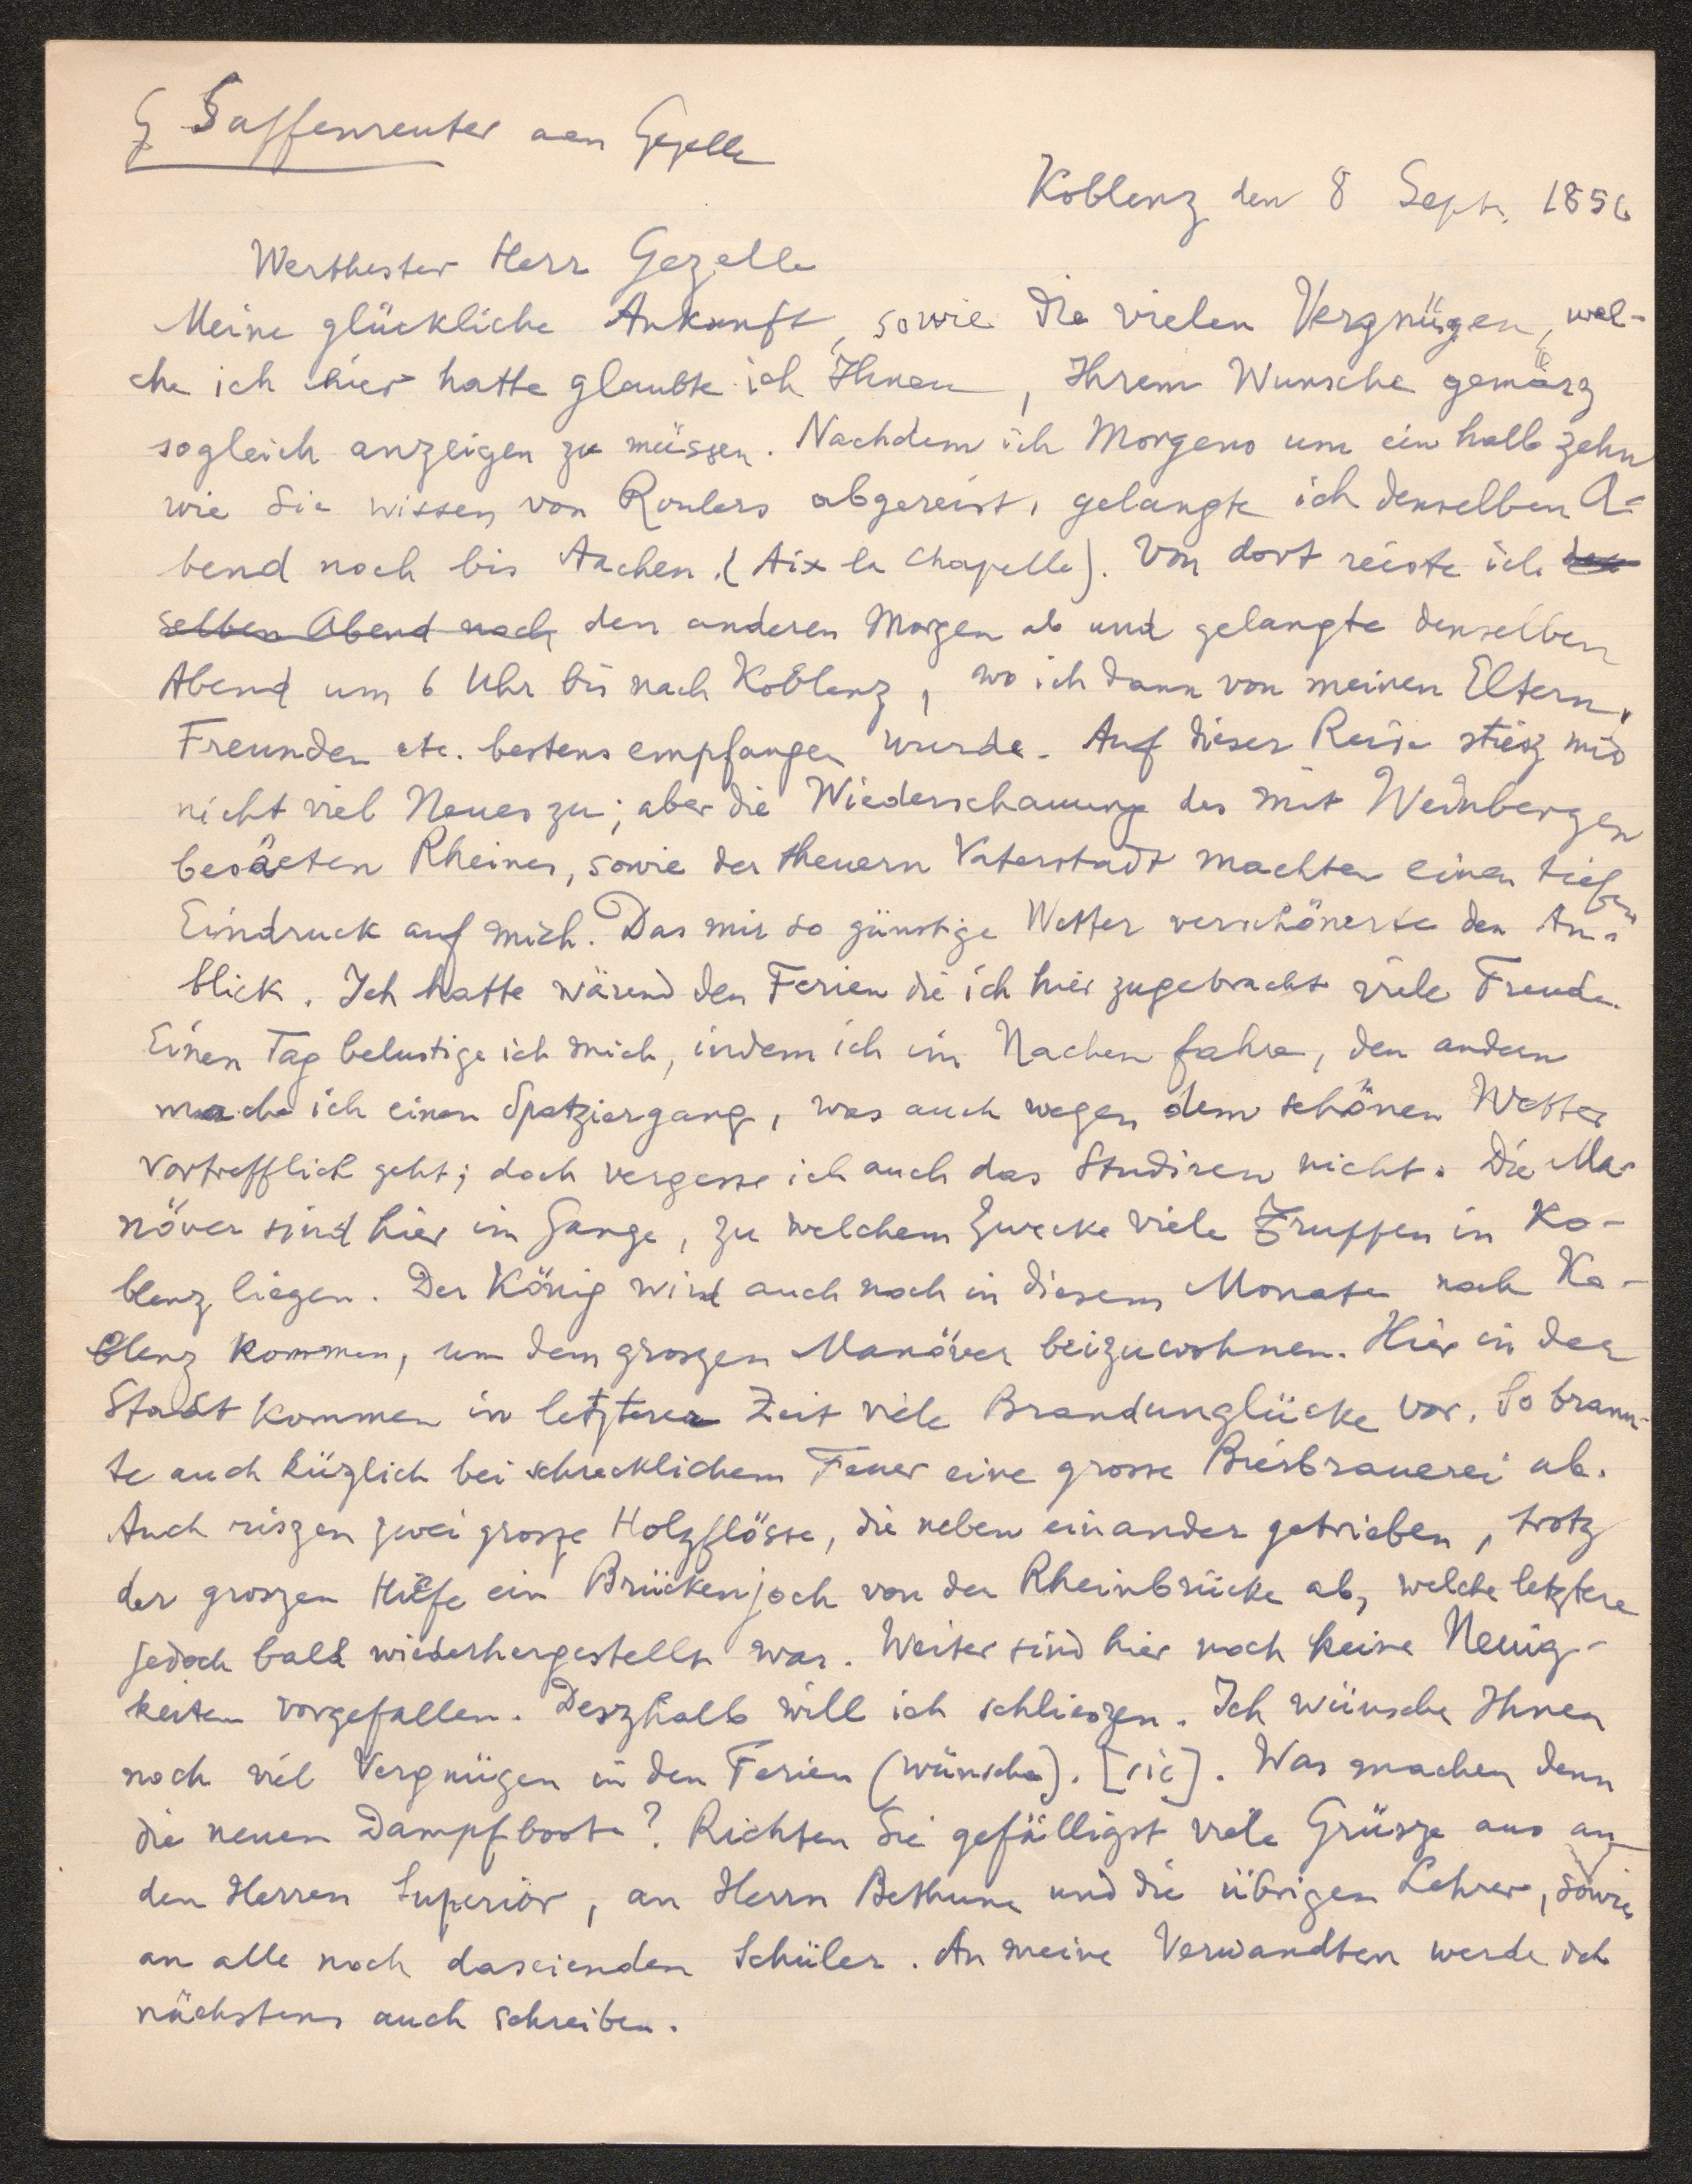 G Saffenreuter aan Gezelle
Koblenz den 8 Sept. 1856
Werthester Herr Gezelle
Meine glückliche Ankunft, sowie die vielen Vergnügen, wel-
che ich hier hatte glaubte ich Ihnen, Ihrem Wunsche gemäsz
sogleich anzeigen zu müssen. Nachdem ich Morgens um ein halb zehn
wie Sie wissen von Roulers abgereist, gelangte ich denselben A-
bend noch bis Aachen. (Aix la Chapelle). Von dort reiste ich den
selben Abend noch den anderen Morgen ab und gelangte denselben
Abend um 6 Uhr bis nach Koblenz, wo ich dann von meinen Eltern,
Freunden etc. bestens empfangen wurde. Auf dieser Reise stiesz mir
nicht viel Neues zu; aber die Wiederschauung des mit Weinbergen
besäeten Rheines, sowie der theuern Vaterstadt machten einen tiefen
Eindruck auf mich. Das mir so günstige Wetter verschönerte den An-
blick. Ich hatte wärend den Ferien die ich hier zugebracht viele Freude.
Einen Tag belustige ich mich, indem ich im Nachen fahre, den andern
mache ich einen Spatziergang, was auch wegen dem schönen Wetter
vortrefflich geht; doch vergesse ich auch das Studiren nicht. Die Ma-
növer sind hier im Gange, zu welchem Zwecke viele Truppen in Ko-
blenz liegen. Der König wird auch noch in diesem Monate nach Ko-
blenz kommen, um dem groszen Manöver beizuwohnen. Hier in der
Stadt kommen in letzterer Zeit viele Brandunglücke vor. So brann-
te auch kürzlich bei schrecklichem Feuer eine grosse Bierbrauerei ab.
Auch riszen zwei grosze Holzflösse, die neben einander getrieben, trotz
der groszen Hilfe ein Brückenjoch von der Rheinbrücke ab, welche letztere
jedoch bald wiederhergestellt war. Weiter sind hier noch keine Neuig-
keiten vorgefallen. Deszhalb will ich schlieszen. Ich wünsche Ihnen
noch viel Vergnügen in den Ferien (wünsche). [sic]. Was machen denn
die neuen Dampfboote? Richten Sie gefälligst viele Grüsze aus an
den Herren Superior, an Herrn Bethune und die übrigen Lehrer, sowie
an alle noch daseienden Schüler. An meine Verwandten werde ich
nächstens auch schreiben.